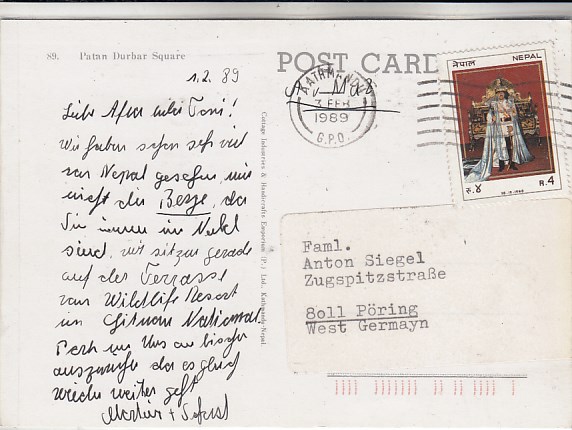 89. Patan Durbar Square
POST CARD
1.2. 89
KATHMANDU
3 FEB
1989
G.P.O.
नेपाल NEPAL
रु.४ R.4
Liebe
Wir haben schon sehr viel
von Nepal gesehen, nur
nicht die Berge, da
Sie immer im Nebel
sind, wir sitzen gerade
auf der Terrasse
vom Wildlife Resort
im Citwan National
Park um uns ein bischen
auszuruhen da es gleich
wieder weiter geht
Cottage Industries & Handicrafts Emporium (P.) Ltd., Kathmandu-Nepal
Faml.
Anton Siegel
Zugspitzstraße
8oll Pöring
West Germayn